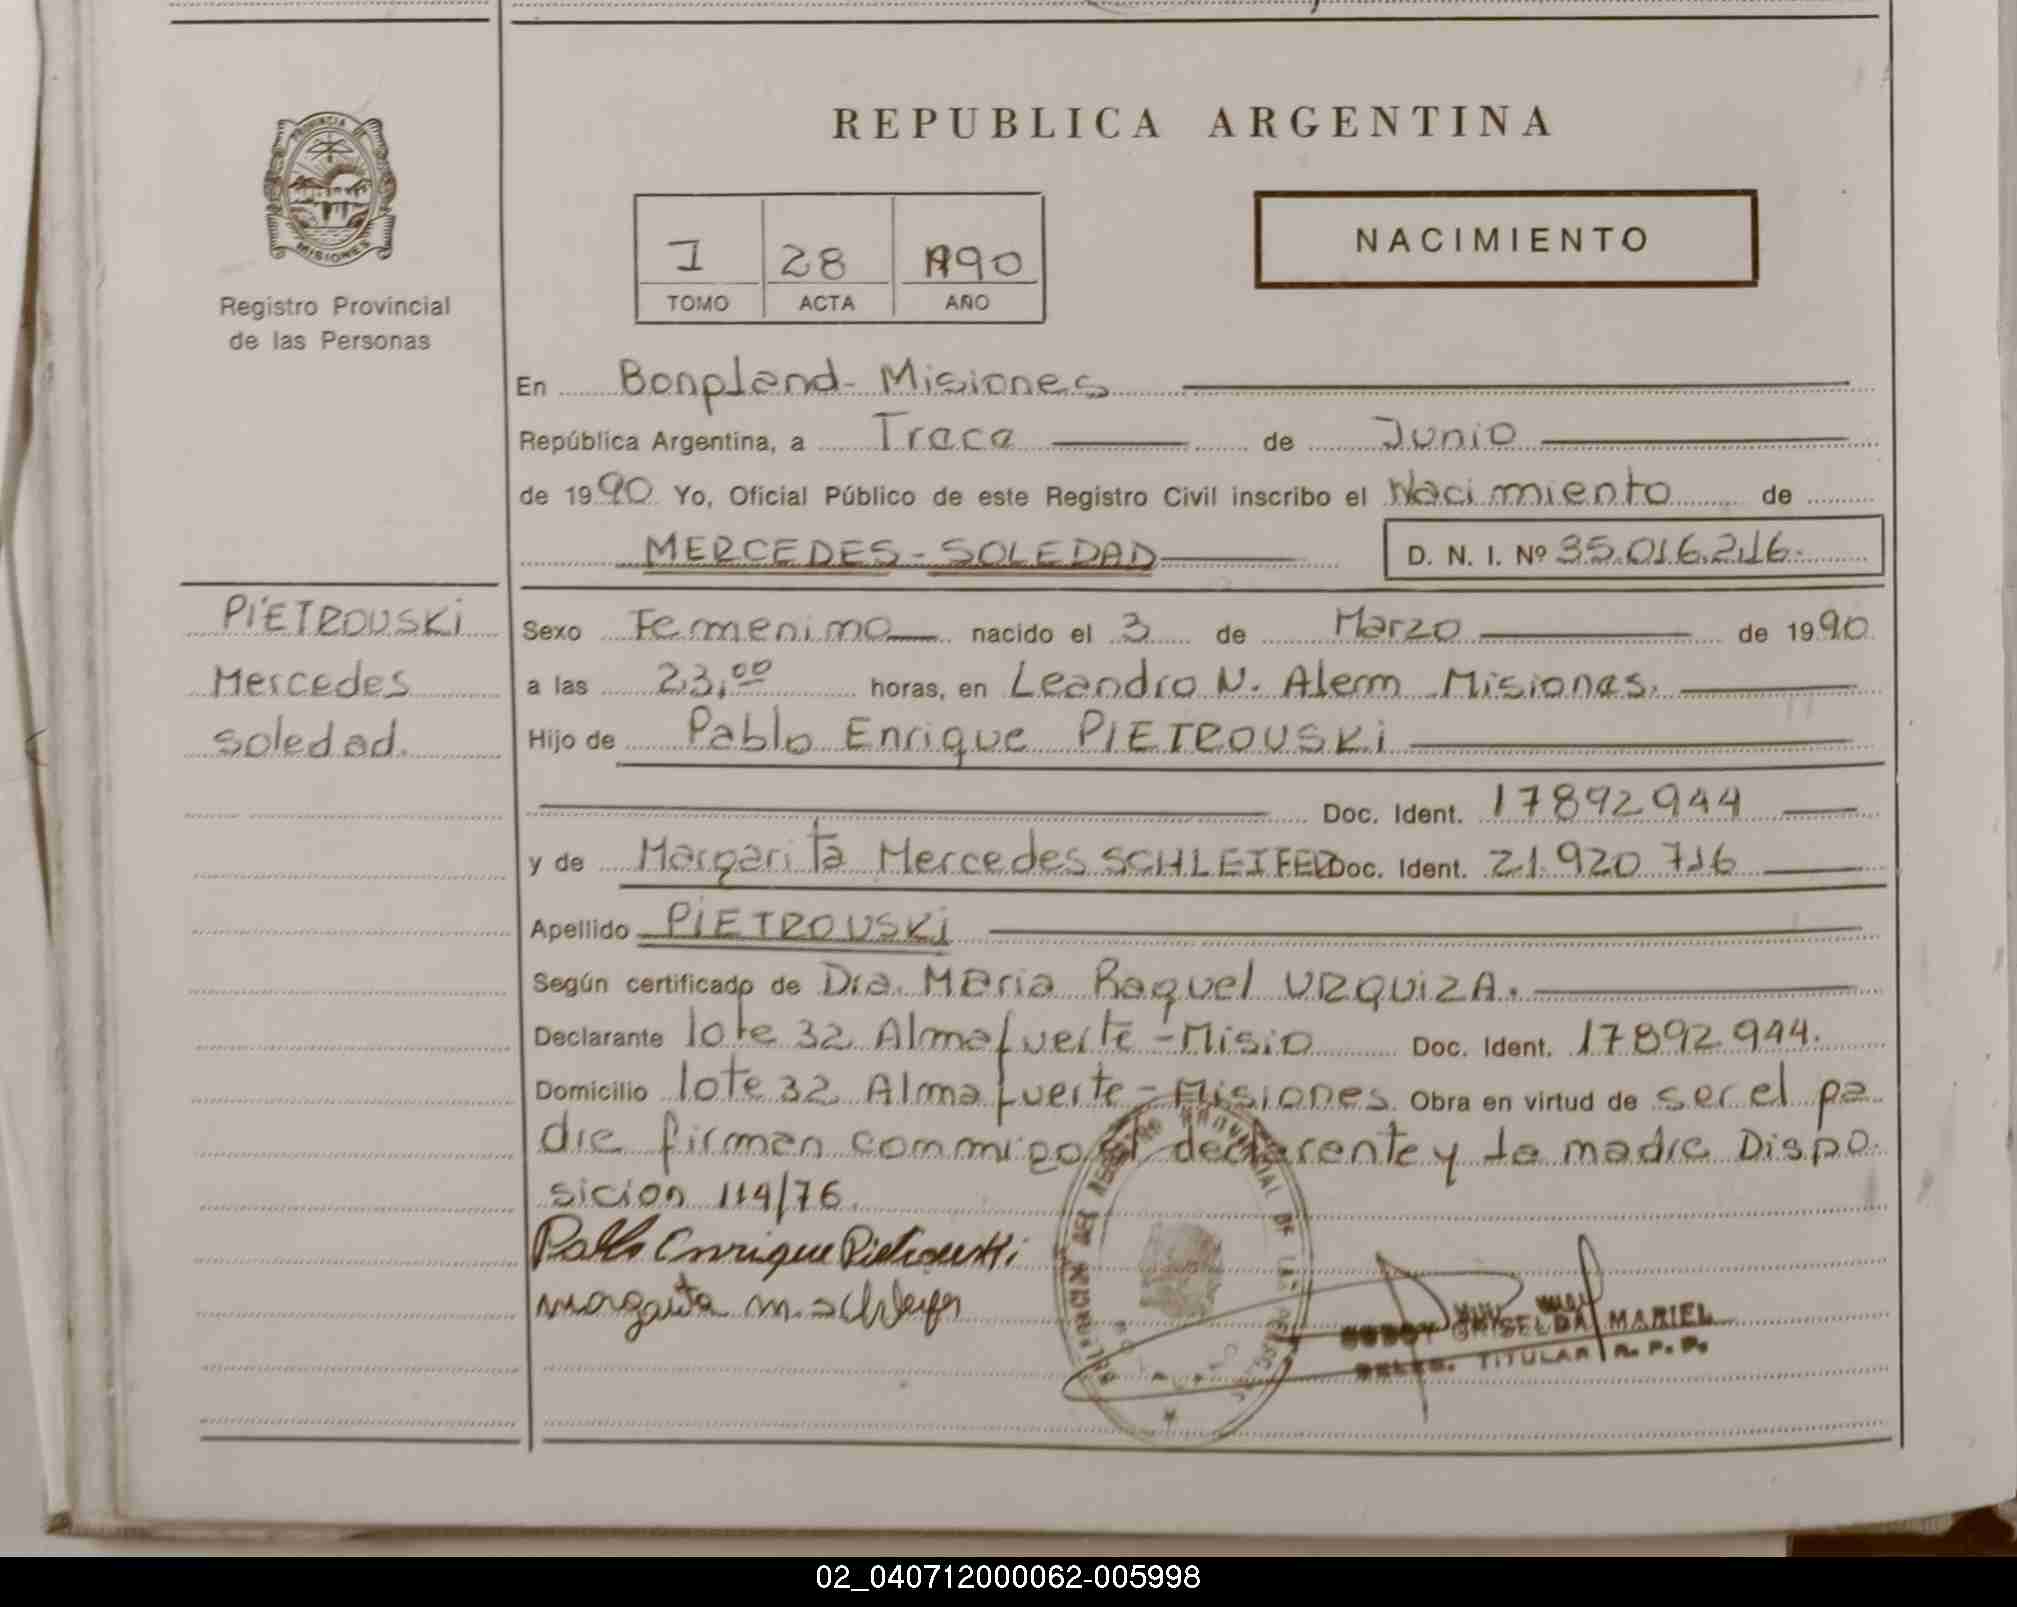 REPUBLICA ARGENTINA
PROVINCIA DE
MISIONES
Registro Provincial
de las Personas
I 28 1990
TOMO ACTA AÑO
NACIMIENTO
En Bonpland - Misiones
República Argentina, a Trece de Junio
de 1990 Yo, Oficial Público de este Registro Civil inscribo el Nacimiento de
MERCEDES - SOLEDAD D. N. I. Nº 35.016.216.
PIETROUSKi
Mercedes
Soledad.
Sexo Femenino nacido el 3 de Marzo de 1990
a las 23,00 horas, en Leandro N. Alem Misiones.
Hijo de Pablo Enrique PIETROUSKi
Doc. Ident. 17892944
y de Margarita Mercedes SCHLEIFER Doc. Ident. 21.920 716
Apellido PIETROUSKi
Según certificado de Dra. Maria Raquel URQUIZA.
Declarante lote 32 Almafuerte - Misio Doc. Ident. 17892944.
Domicilio lote 32 Almafuerte - Misiones Obra en virtud de ser el pa
dre firman conmigo el declarante y la madre Dispo
sicion 114/76.
Pablo Enrique Pietrouski
Margarita M. Schleifer
GRISELDA MARIEL
TITULAR R. P. P.
02_040712000062-005998